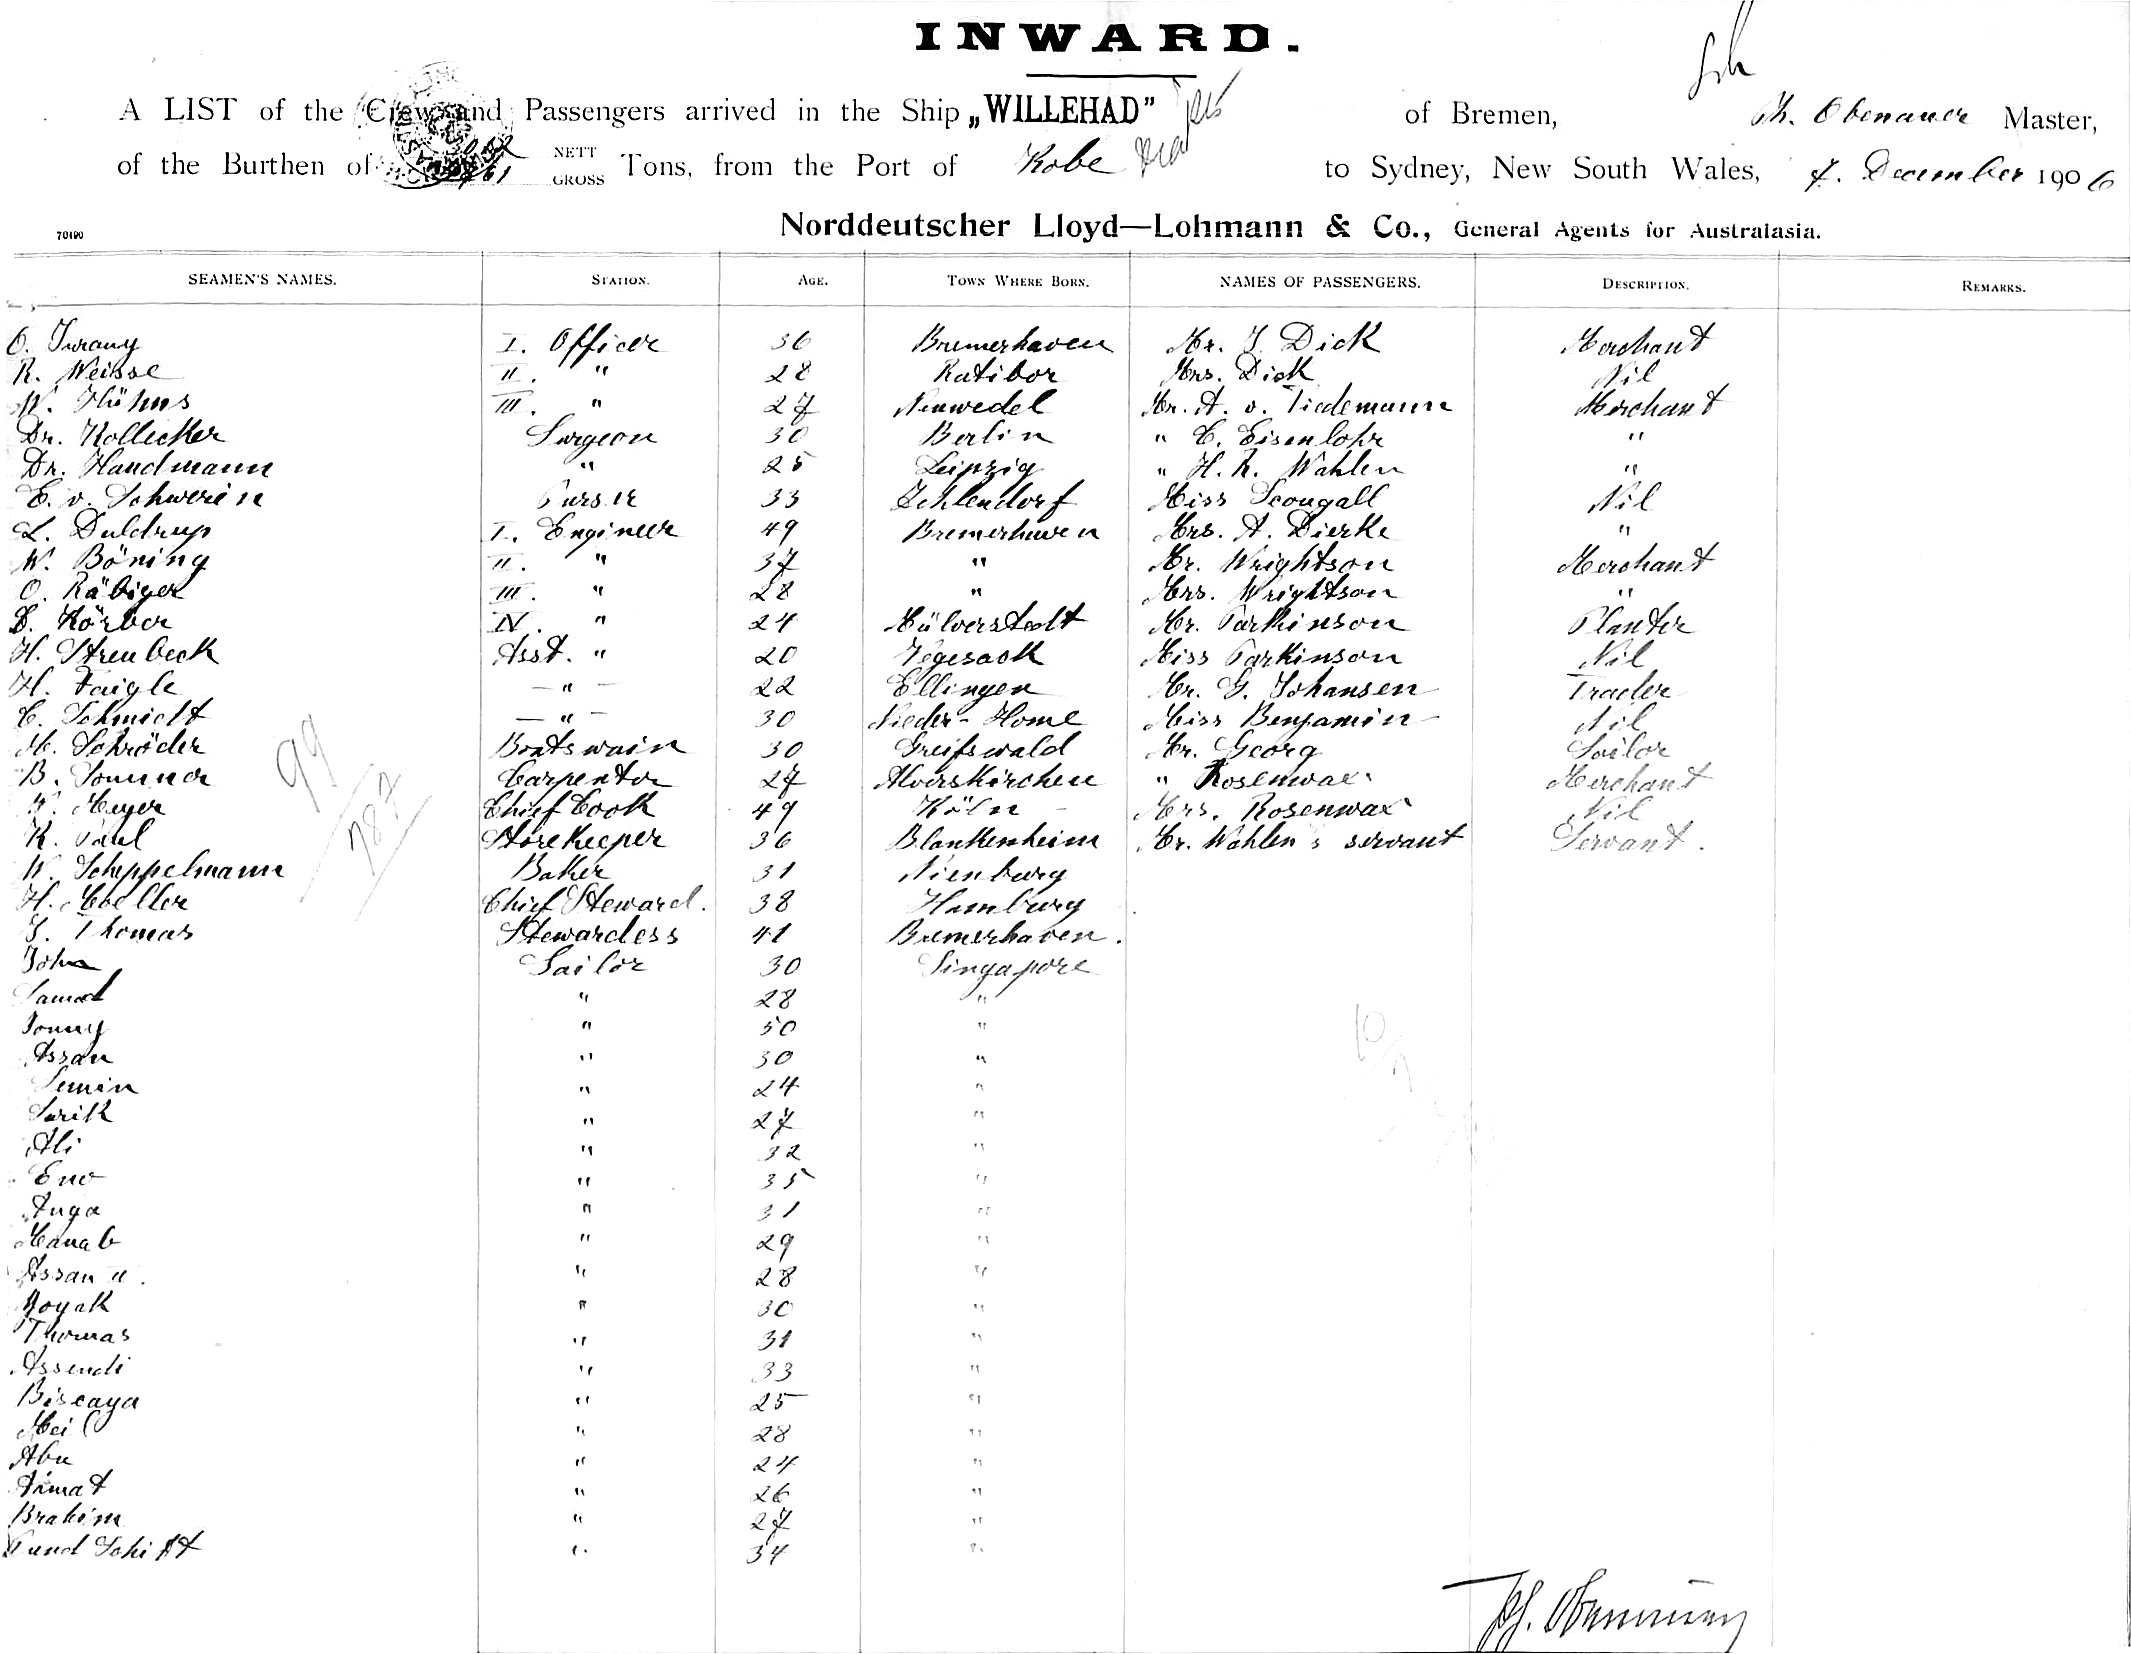 INWARD.
A LIST of the Crew and Passengers arrived in the Ship „WILLEHAD” of Bremen, Th. Obenauer Master,
of the Burthen of NETT GROSS Tons, from the Port of Kobe to Sydney, New South Wales, 7. December 1906
Norddeutscher Lloyd—Lohmann & Co., General Agents for Australasia.
70190
SEAMEN'S NAMES. STATION. AGE. TOWN WHERE BORN. NAMES OF PASSENGERS. DESCRIPTION. REMARKS.
O. Turany I. Officer 36 Bremerhaven Mr. J. Dick Merchant
R. Weisse II. " 28 Ratibor Mrs. Dick Nil
W. Hühns III. " 27 Neuwedel Mr. A. v. Tiedemann Merchant
Dr. Kollecker Surgeon 30 Berlin " C. Eisenlohr "
Dr. Handmann " 25 Leipzig " H. R. Wahlen "
E. v. Schwerin Purser 33 Zehlendorf Miss Scougall Nil
L. Duldrup I. Engineer 49 Bremerhaven Mrs. A. Dierke "
W. Böning II. " 37 " Mr. Wrightson Merchant
O. Räbiger III. " 28 " Mrs. Wrightson "
Körber IV. " 24 Mülverstedt Mr. Parkinson Planter
H. Strenbeck Asst. " 20 Vegesack Miss Parkinson Nil
H. Faigle — " — 22 Ellingen Mr. G. Johansen Trader
C. Schmidt — " — 30 Nieder-Home Miss Benjamin Nil
M. Schröder Boatswain 30 Greifswald Mr. Georg Sailor
B. Sommer Carpenter 27 Alverskirchen " Rosenwax Merchant
Meyer Chief Cook 49 Köln Mrs. Rosenwax Nil
K. Paul Storekeeper 36 Blankenheim Mr. Wahlen's servant Servant.
W. Scheppelmann Baker 31 Nienburg
H. Moeller Chief Steward. 38 Hamburg
J. Thomas Stewardess 41 Bremerhaven.
John Sailor 30 Singapore
Samad " 28 "
Jonny " 50 "
Assan " 30 "
Semin " 24 "
Sarik " 27 "
Ali " 32 "
Eno " 35 "
Anga " 31 "
Manab " 29 "
Assan II. " 28 "
Noyak " 30 "
Thomas " 31 "
Assendi " 33 "
Biscaya " 25 "
Mei " 28 "
Abu " 24 "
Armat " 26 "
Brahim " 27 "
" 34 "
99
787
10
Th. Obenauer